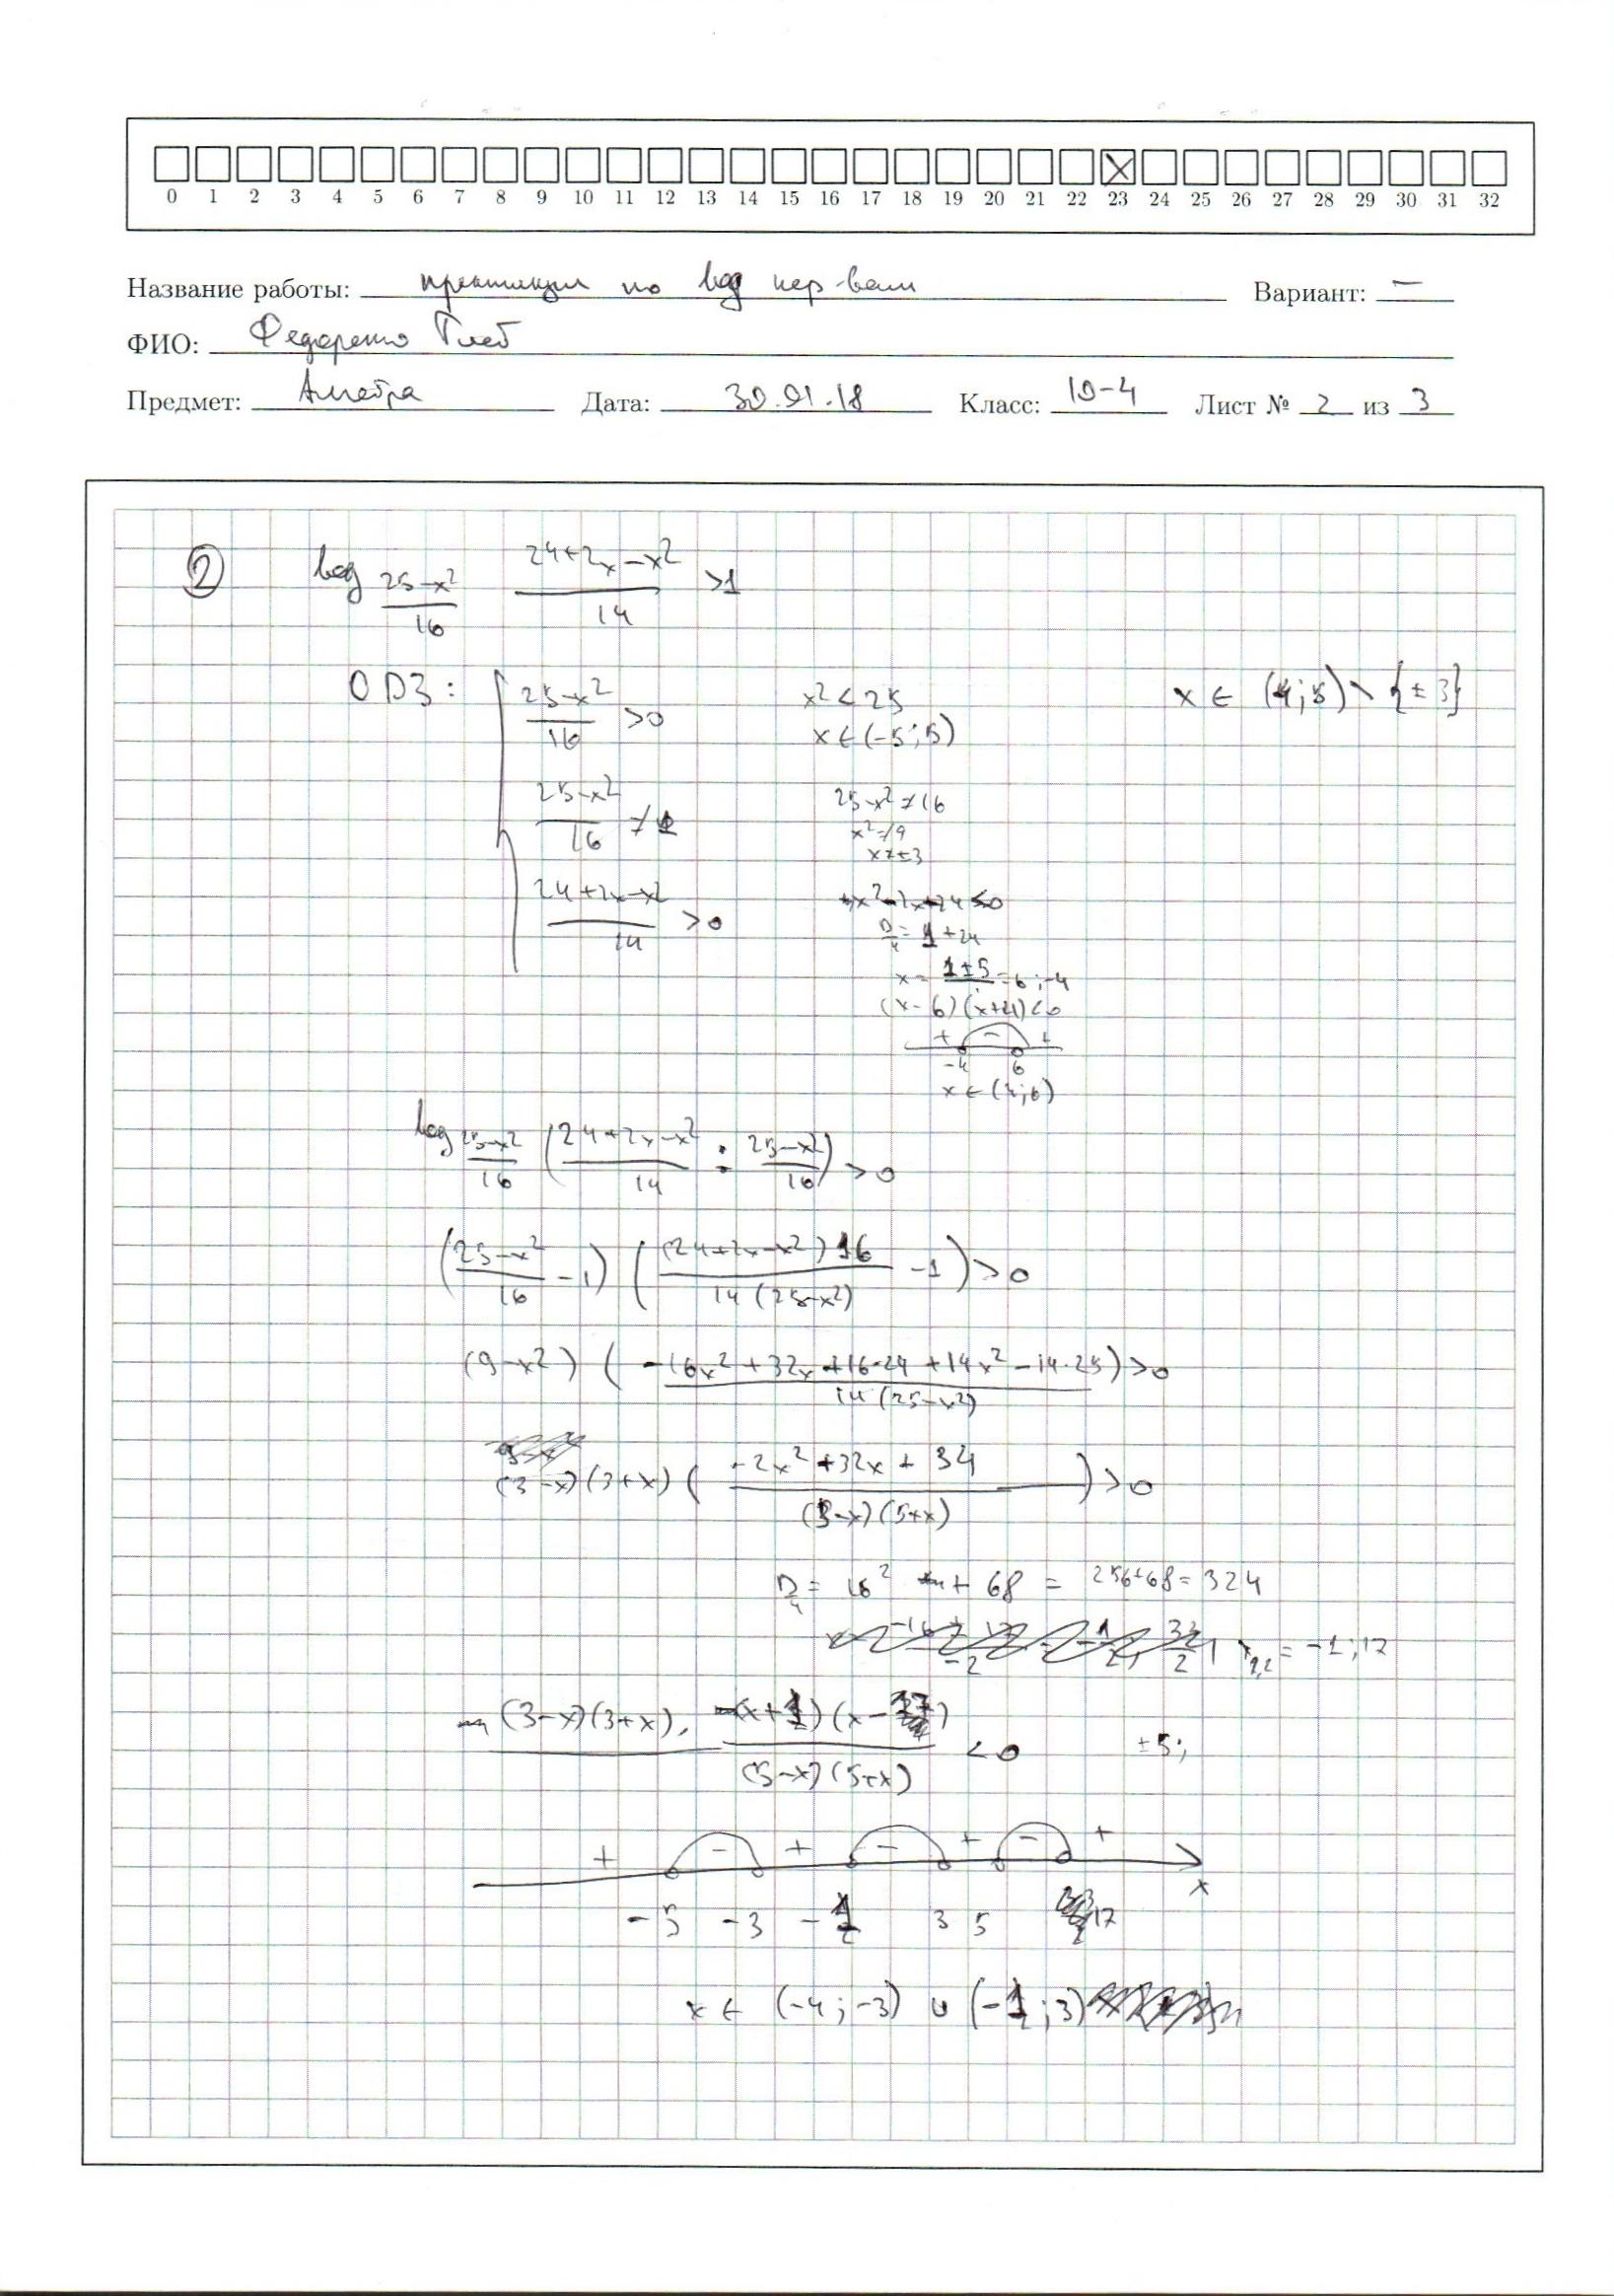 0 1 2 3 4 5 6 7 8 9 10 11 12 13 14 15 16 17 18 19 20 21 22 23 24 25 26 27 28 29 30 31 32
Название работы: по log нер-вам Вариант: –
ФИО: Федоренко Глеб
Предмет: Алгебра Дата: 30.01.18 Класс: 10-4 Лист № 2 из 3
② log_{(25-x²)/16} (24+2x-x²)/14 >1
ОДЗ: (25-x²)/16 >0 x²<25 x∈(4;5)∖{±3}
x∈(-5;5)
(25-x²)/16 ≠1 25-x²≠16
x²≠9
x≠±3
(24+2x-x²)/14 >0 x²-2x-24<0
D/4 = 1+24
x = 1±5 = 6;-4
(x-6)(x+4)<0
+ - +
-4 6
x∈(4;6)
log_{(25-x²)/16} ((24+2x-x²)/14 : (25-x²)/16) >0
((25-x²)/16 -1) ((24+2x-x²)16/14(25-x²) -1) >0
(9-x²) ((-16x²+32x+16·24+14x²-14·25)/14(25-x²)) >0
(3-x)(3+x) ((-2x²+32x+34)/(5-x)(5+x)) >0
D/4 = 16²+68 = 256+68 = 324
x₁,₂ = -1;17
(3-x)(3+x)·(x+1)(x-17)/(5-x)(5+x) <0 ±5;
+ - + - + - +
x
-5 -3 -1 3 5 17
x∈(-4;-3)∪(-1;3)